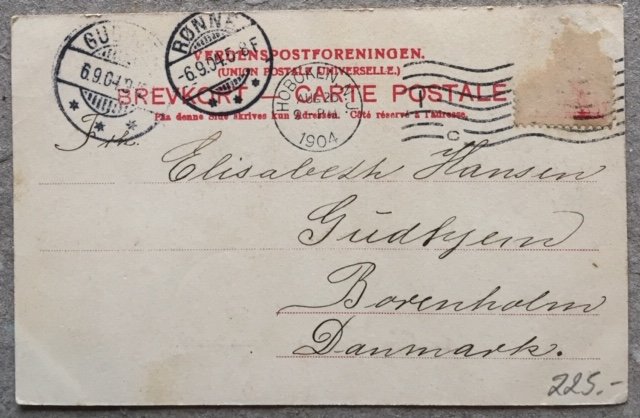 RØNNE
6.9.04.5-8F
6.9.04
VERDENSPOSTFORENINGEN.
(UNION POSTALE UNIVERSELLE.)
BREVKORT — CARTE POSTALE
Paa denne Side skrives kun Adressen. Côté réservé à l'adresse.
HOBOKEN, N.J.
AUG 26
1904
Frk.
Elisabeth Hansen
Gudhjem
Borenholm
Danmark.
225.-